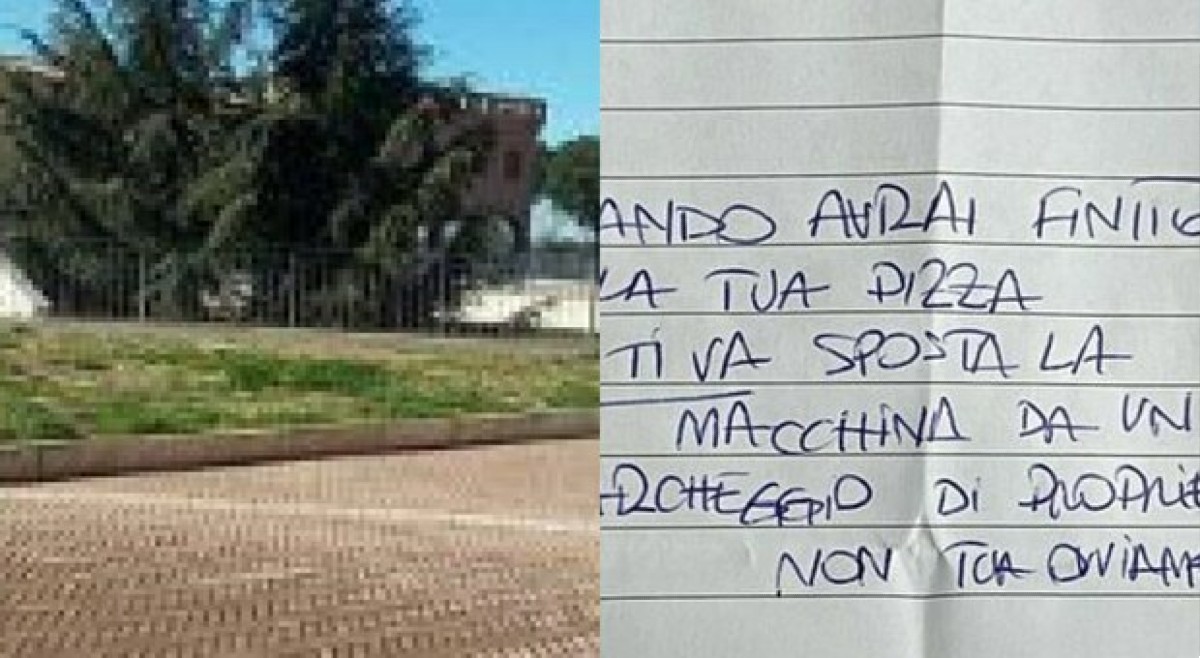 ANDO AVRAI FINITO
LA TUA PIZZA
TI VA SPOSTA LA
MACCHINA DA UN
RCHEGGIO DI PROPRIE
NON TUA OVVIAME